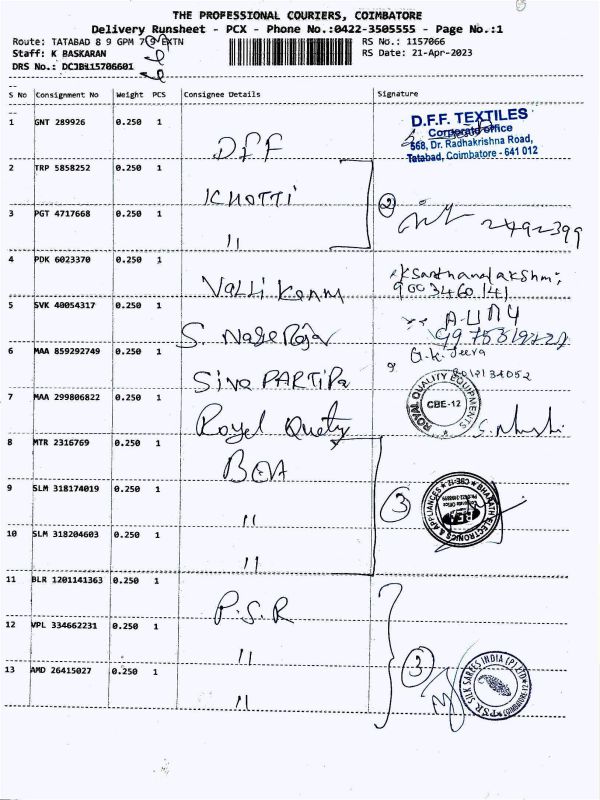 THE PROFESSIONAL COURIERS, COIMBATORE
Delivery Runsheet - PCX - Phone No.:0422-3505555 - Page No.:1
Route: TATABAD 8 9 GPM 7 9 EXTN
RS No.: 1157066
Staff: K BASKARAN
RS Date: 21-Apr-2023
DRS No.: DCJB115706601
S No Consignment No Weight PCS Consignee Details Signature
1 GNT 289926 0.250 1 DFF
D.F.F. TEXTILES
Corporate office
568, Dr. Radhakrishna Road,
Tatabad, Coimbatore - 641 012
2 TRP 5858252 0.250 1 KHOTTI
3 PGT 4717668 0.250 1 "
2 2492399
4 PDK 6023370 0.250 1 Valli
9003460141
5 SVK 40054317 0.250 1 S.
6 MAA 859292749 0.250 1 Siva
G.K. Jeeva
7 MAA 299806822 0.250 1 Royel
ROYAL QUALITY EQUIPMENTS
CBE-12
8 MTR 2316769 0.250 1 BEA
9 SLM 318174019 0.250 1 "
3
BHARATH ELECTRONICS & APPLIANCES CBE-12
10 SLM 318204603 0.250 1 "
11 BLR 1201141363 0.250 1 P.S.R
12 VPL 334662231 0.250 1 "
3
P.S.R SILK SAREES INDIA (P) LTD COIMBATORE-12
13 AMD 26415027 0.250 1 "